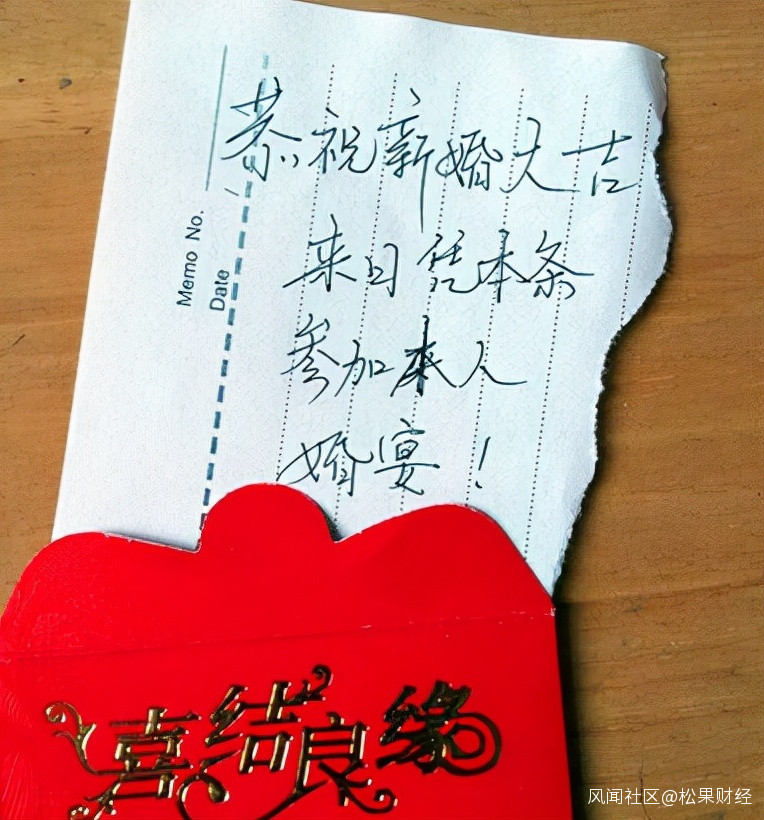 Memo No.
Date
恭祝新婚大吉
来日凭本条
参加本人
婚宴！
喜结良缘
风闻社区@松果财经